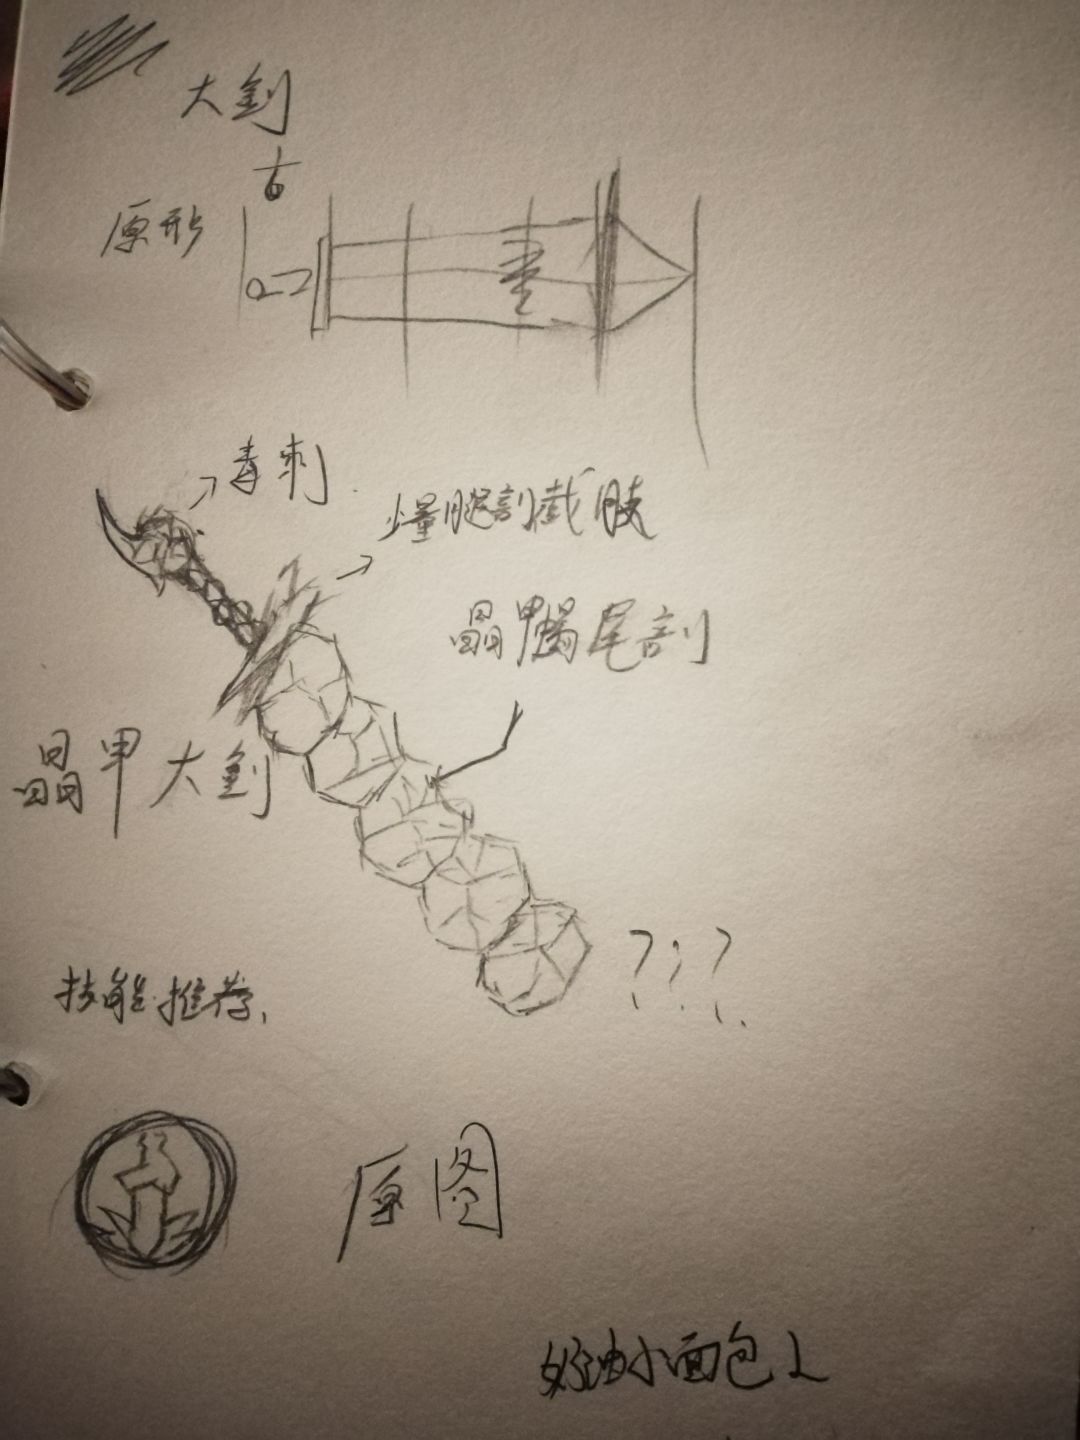 大剑
古
原形
毒刺
爆腿剖截肢
晶鸭蝎尾剖
晶甲大剑
???
技能推荐、
原图
奶油小面包